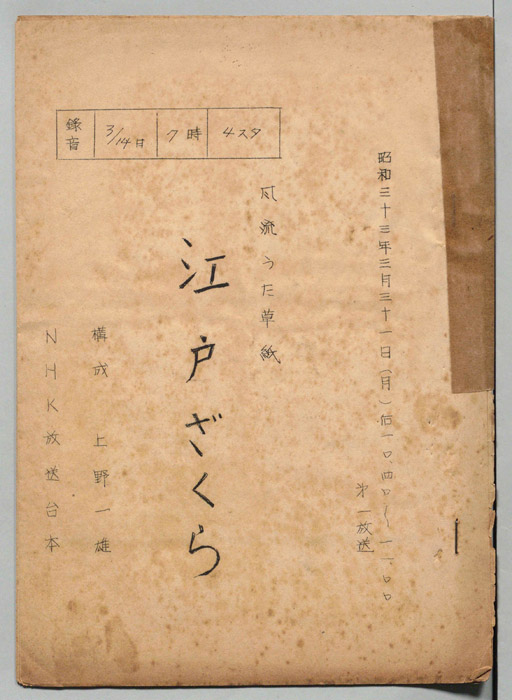 録音 3/14日 7時 4スタ
昭和三十三年三月三十一日(月)后一〇.四〇〜一一.〇〇
第一放送
風流うた草紙
江戸ざくら
構成 上野一雄
NHK放送台本